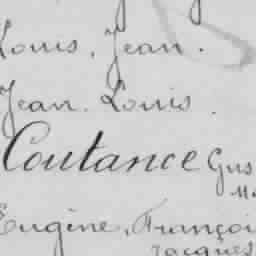 Louis, Jean.
Jean. Louis.
Coutance Gus
Eugène, Françoi
Jacques